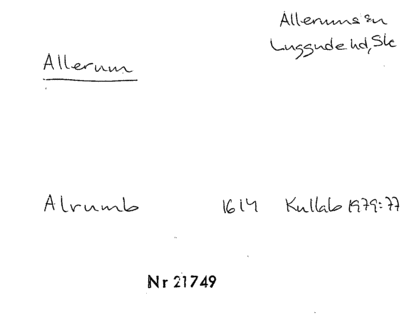 Allerums sn
Luggude hd, Sk
Allerum
Alrumb 1614 Kullab 1979:77
Nr 21749